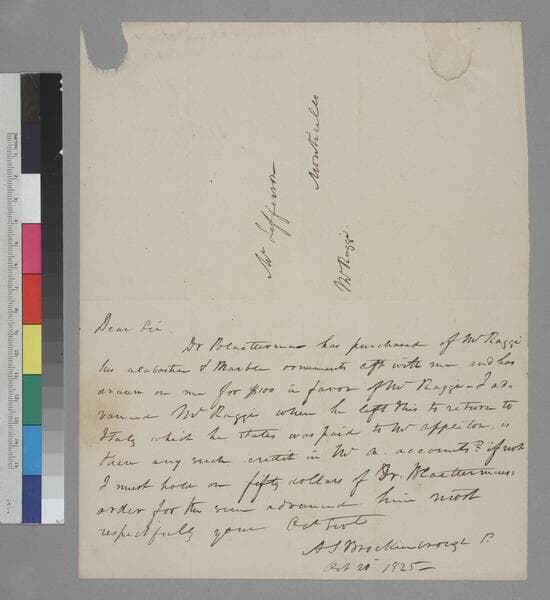 Monticello
Mr Jefferson
Mr Raggi
Dear Sir.
Dr Blaetterman has purchased of Mr Raggi
his alabaster & Marble ornaments left with me and has
drawn on me for $100 in favor of Mr Raggi – I ad-
vanced Mr Raggi when he left this to return to
Italy which he states was paid to Mr Appleton. is
there any such credit in Mr A. accounts? if not
I must hold on fifty dollars of Dr. Blaettermans
order for the sum advanced him most
respectfully your Obt Svt
A S Brockenbrough P.
Oct 20 1825 –